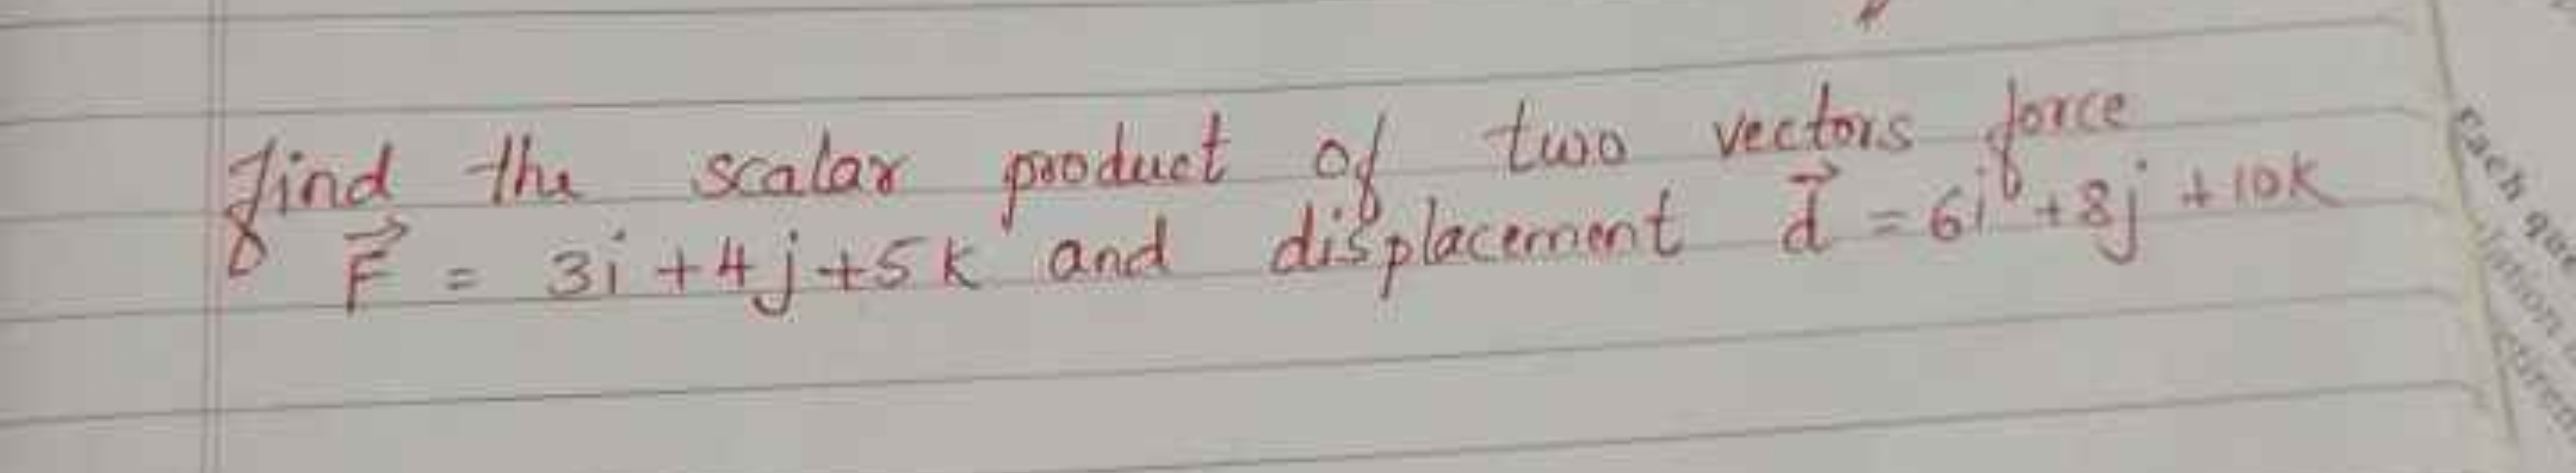 find the scalar product of two vectors force
F⃗ = 3i + 4j + 5k and displacement d⃗ = 6i + 8j + 10k
Each que